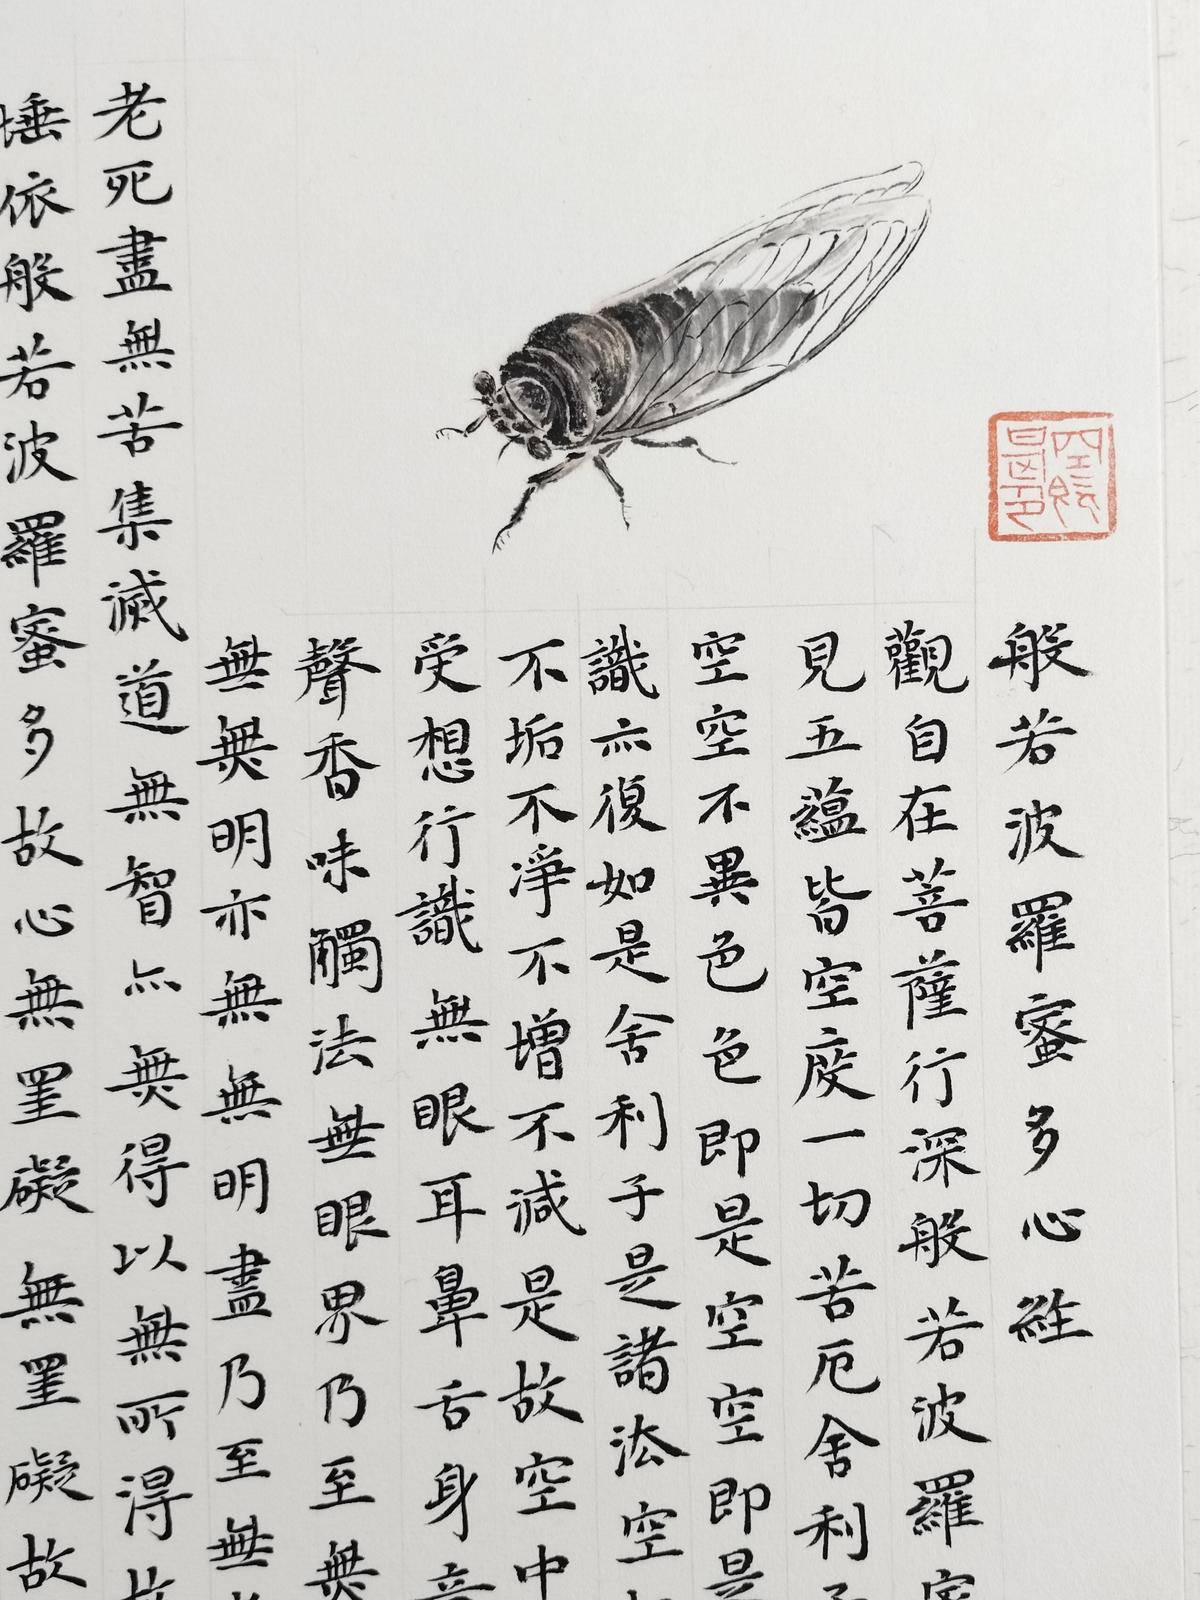 般若波羅蜜多心経
觀自在菩薩行深般若波羅蜜
見五蘊皆空度一切苦厄舍利子
空空不異色色即是空空即是
識亦復如是舍利子是諸法空
不垢不淨不增不減是故空中
受想行識無眼耳鼻舌身意
聲香味觸法無眼界乃至無
無無明亦無無明盡乃至無
老死盡無苦集滅道無智亦無得以無所得故
埵依般若波羅蜜多故心無罣礙無罣礙故